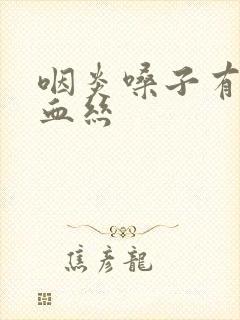 咽炎嗓子有
血丝
焦彦龍